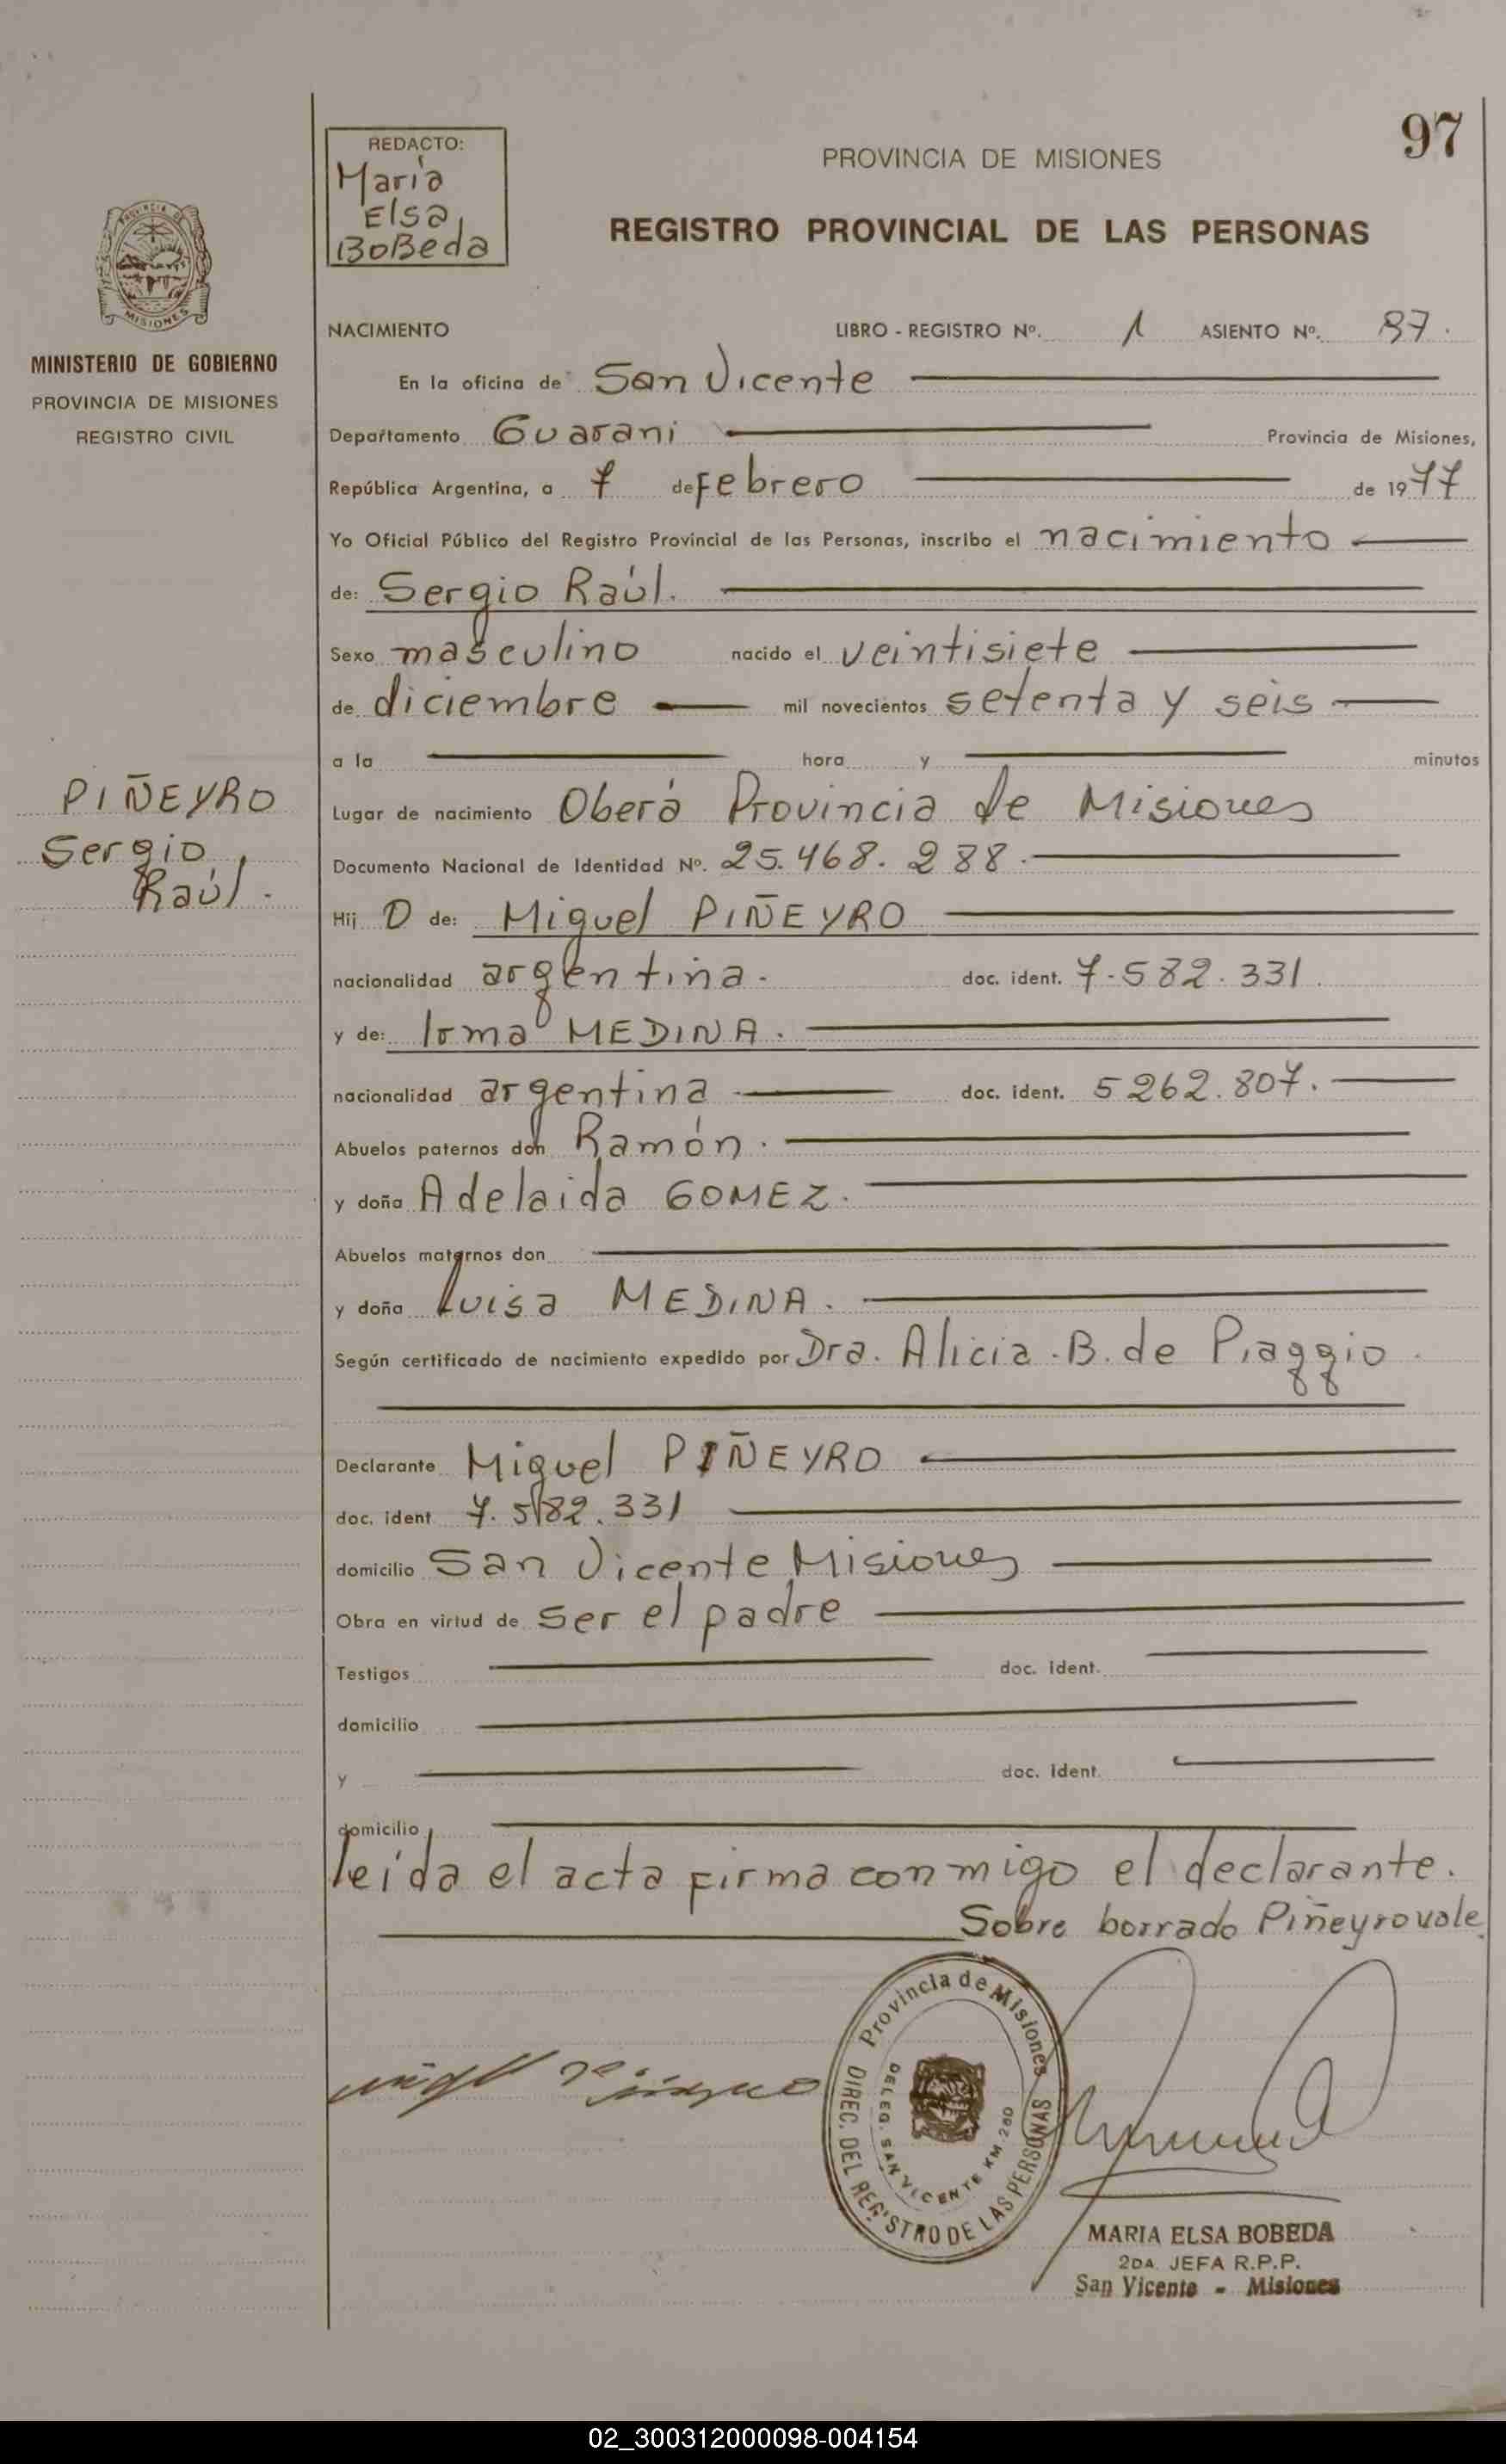 97
REDACTO:
María
Elsa
BoBeda
PROVINCIA DE MISIONES
REGISTRO PROVINCIAL DE LAS PERSONAS
PROVINCIA DE
MISIONES
MINISTERIO DE GOBIERNO
PROVINCIA DE MISIONES
REGISTRO CIVIL
NACIMIENTO LIBRO - REGISTRO Nº. 1 ASIENTO Nº. 97.
En la oficina de San Vicente
Departamento Guarani Provincia de Misiones,
República Argentina, a 7 de Febrero de 1977
Yo Oficial Público del Registro Provincial de las Personas, inscribo el nacimiento
de: Sergio Raúl.
Sexo masculino nacido el veintisiete
de diciembre mil novecientos setenta y seis
a la hora y minutos
PIÑEYRO
Sergio
Raúl.
Lugar de nacimiento Oberá Provincia de Misiones
Documento Nacional de Identidad Nº. 25.468.288.
Hij O de: Miguel PIÑEYRO
nacionalidad argentina. doc. ident. 7.582.331.
y de: Irma MEDINA.
nacionalidad argentina doc. ident. 5262.807.
Abuelos paternos don Ramón.
y doña Adelaida GOMEZ.
Abuelos maternos don
y doña Luisa MEDINA.
Según certificado de nacimiento expedido por Dra. Alicia. B. de Piaggio.
Declarante Miguel PIÑEYRO
doc. ident 7.582.331
domicilio San Vicente Misiones
Obra en virtud de ser el padre
Testigos doc. ident.
domicilio
y doc. ident.
domicilio
leída el acta firma conmigo el declarante.
Sobre borrado Piñeyro vale.
Provincia de Misiones
DIREC. DEL REGISTRO DE LAS PERSONAS
DELEG. SAN VICENTE KM. 280
MARIA ELSA BOBEDA
2DA. JEFA R.P.P.
San Vicente - Misiones
02_300312000098-004154